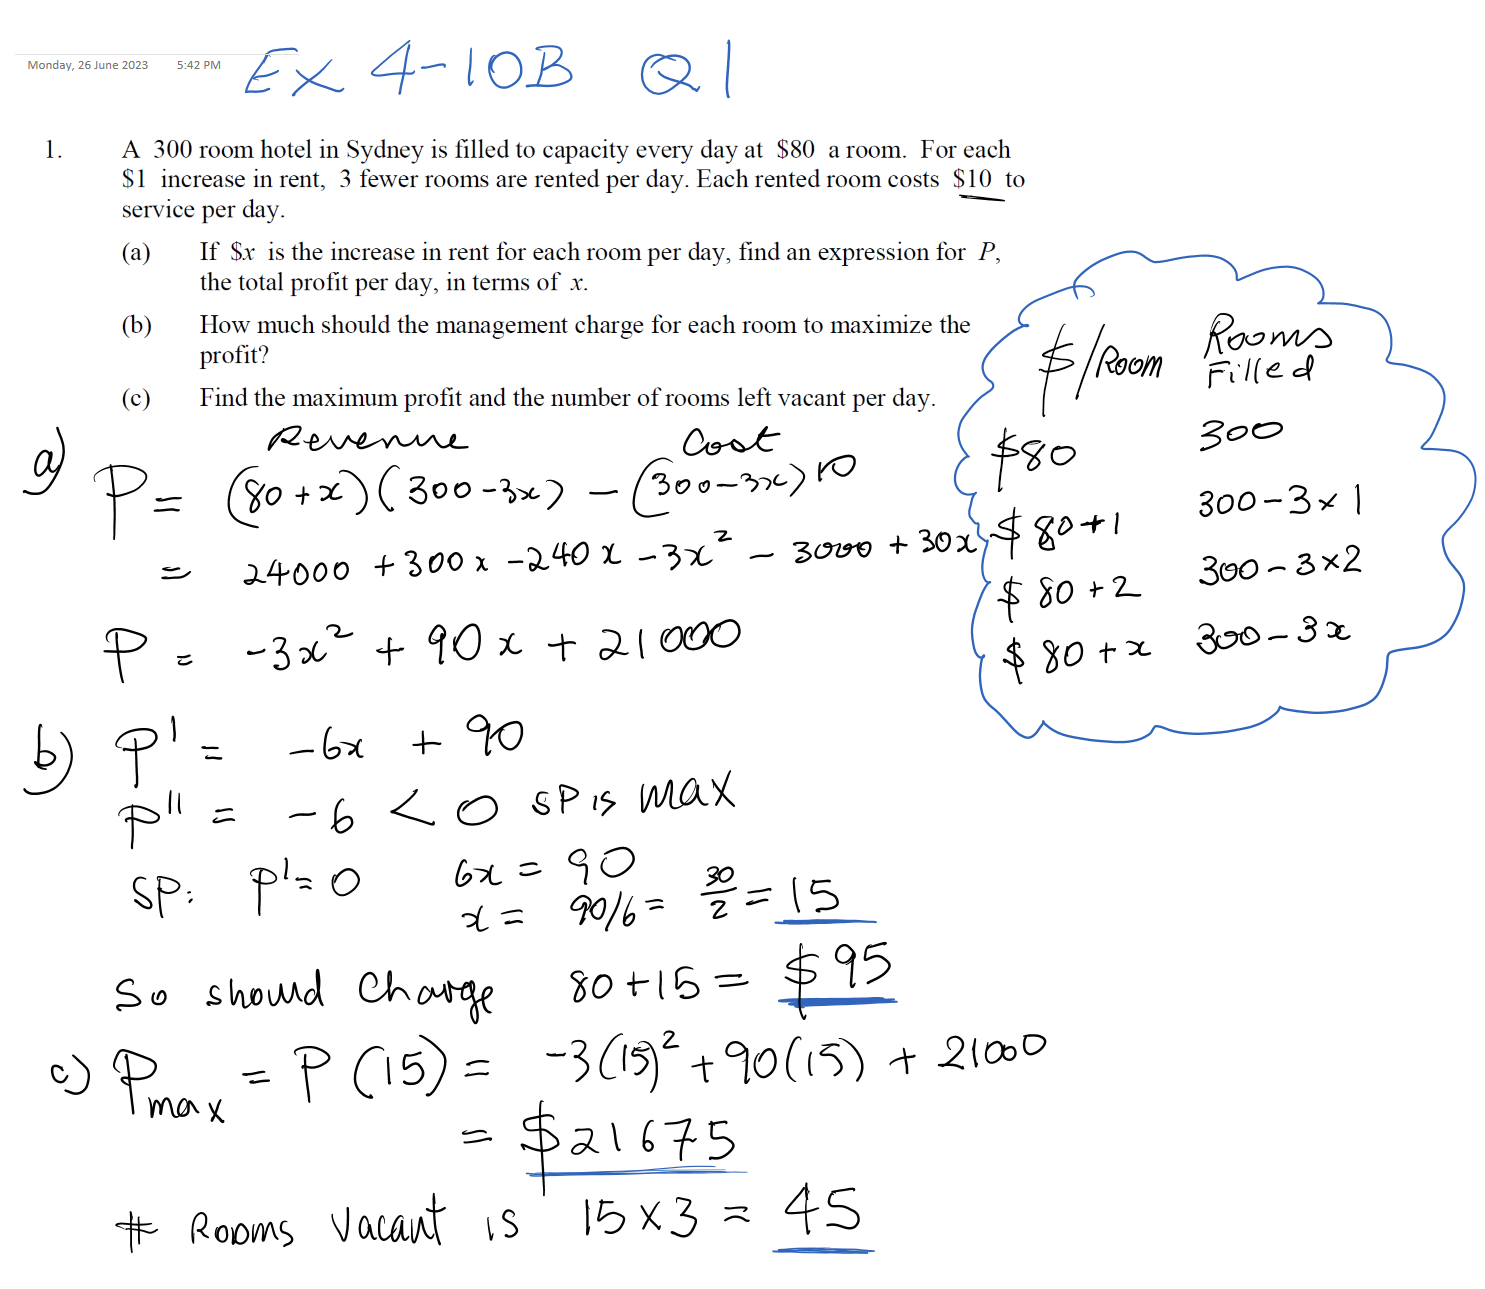 Monday, 26 June 2023 5:42 PM
EX 4-10B Q1
1. A 300 room hotel in Sydney is filled to capacity every day at $80 a room. For each
$1 increase in rent, 3 fewer rooms are rented per day. Each rented room costs $10 to
service per day.
(a) If $x is the increase in rent for each room per day, find an expression for P,
the total profit per day, in terms of x.
(b) How much should the management charge for each room to maximize the
profit?
(c) Find the maximum profit and the number of rooms left vacant per day.
$/Room Rooms Filled
$80 300
$80+1 300-3×1
$80+2 300-3×2
$80+x 300-3x
Revenue Cost
a) P = (80+x)(300-3x) - (300-3x)10
= 24000 + 300x - 240x - 3x² - 3000 + 30x
P = -3x² + 90x + 21000
b) P' = -6x + 90
P'' = -6 < 0 SP is max
SP: P'=0 6x = 90
x = 90/6 = 30/2 = 15
So should charge 80+15 = $95
c) Pmax = P(15) = -3(15)² + 90(15) + 21000
= $21675
# Rooms vacant is 15×3 = 45